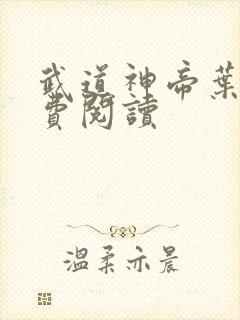 武道神帝葉
費閱讀
溫柔亦晨